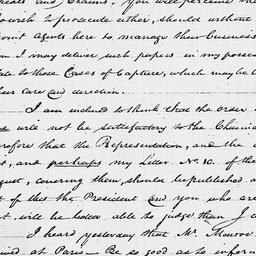 peals and Claims, You will perceive the
wish to prosecute either, should without
point agents here to manage their business
m I may deliver such papers in my posses
late to those Cases of Capture, which may be
their care and direction.
I am inclined to think that the order
will not be satisfactory to the Claima
refore that the Representation, and the
t, and perhaps my Letter No. 10. of the
gust, covering them, should be published
t of this the President and you who are
t will be better able to judge than I
I heard yesterday that Mr. Monroe
ived at Paris— Be so good as to inform